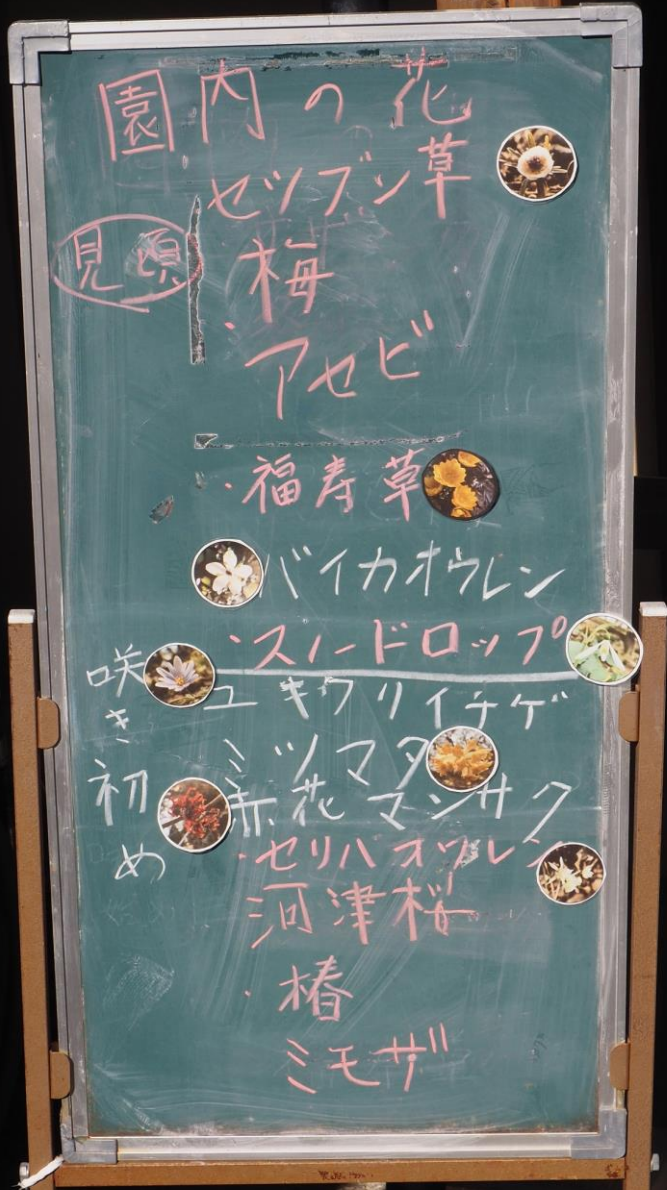 園内の花
セツブン草
見頃
梅
・アセビ
・福寿草
バイカオウレン
・スノードロップ
咲き初め
ユキワリイチゲ
ミツマタ
赤花マンサク
・セリバオウレン
河津桜
・椿
ミモザ